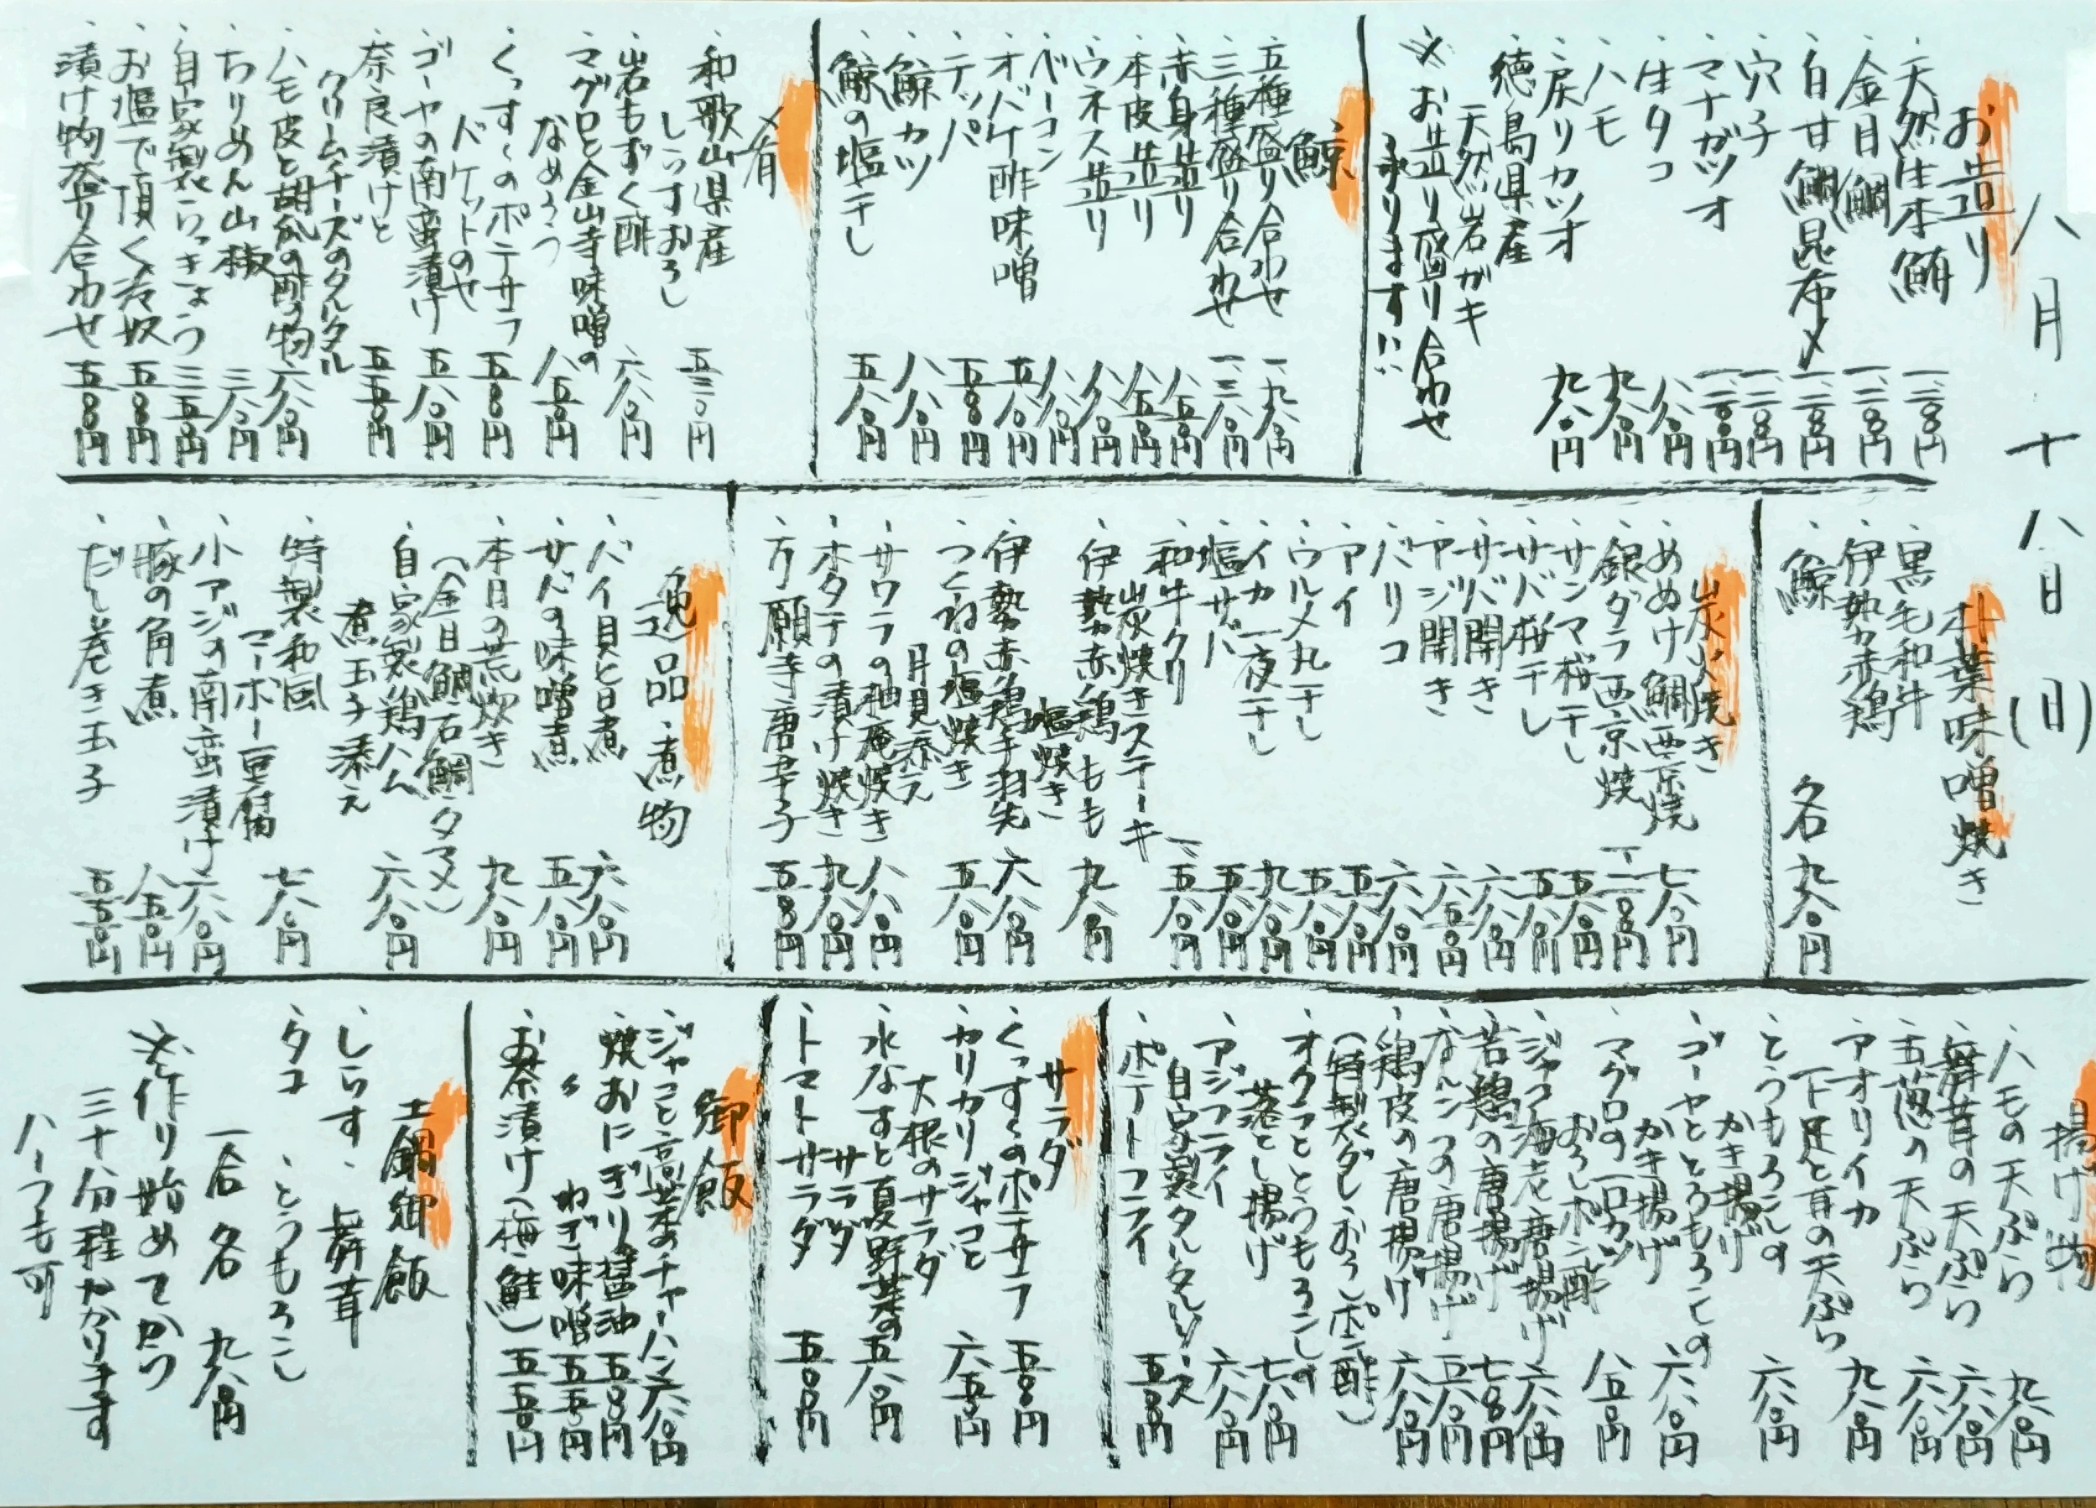 八月十八日(月)
お造り
、天然生本鮪 一、二八〇円
、金目鯛 一、二八〇円
、白甘鯛昆布〆 一、二八〇円
、穴子 一、二八〇円
、マナガツオ 一、二八〇円
、生タコ 八八〇円
、ハモ 九八〇円
、戻りカツオ 九八〇円
、徳島県産
天然岩ガキ
※お造り盛り合わせ
承ります!!
鯨
、五種盛り合わせ 一、九八〇円
、三種盛り合わせ 一、三八〇円
、赤身造り 八五〇円
、本皮造り 八五〇円
、ウネス造り 八八〇円
、ベーコン 八八〇円
、オバケ酢味噌 五八〇円
、テッパ 五五〇円
、鯨カツ 八八〇円
、鯨の塩干し 五八〇円
〆肴
、和歌山県産
しらすおろし 五三〇円
、岩もずく酢 六八〇円
、マグロと金山寺味噌の
なめろう 八五〇円
、くっすぐのポテサラ
バケットのせ 五五〇円
、ゴーヤの南蛮漬け 五八〇円
、奈良漬けと
クリームチーズのタルタル 五五〇円
、ハモ皮と胡瓜の酢の物 六八〇円
、ちりめん山椒 三八〇円
、自家製らっきょう 三五〇円
、お塩で頂く冷奴 五五〇円
、漬け物盛り合わせ 五五〇円
朴葉味噌焼き
、黒毛和牛
、伊勢赤鶏
、鯨 各九八〇円
炭火焼き
、あめけ鯛西京焼 七八〇円
、銀ダラ西京焼 一、二八〇円
、サンマ桜干し 五八〇円
、サバ桜干し 五八〇円
、サバ開き 六八〇円
、アジ開き 六五〇円
、バリコ 六八〇円
、アイ 五八〇円
、ウルメ丸干し 五五〇円
、イカ一夜干し 九八〇円
、塩サバ 五八〇円
、和牛クリ
炭焼きステーキ 一、五八〇円
、伊勢赤鶏もも
塩焼き 九八〇円
、伊勢赤鶏手羽先 六八〇円
、つくねの塩焼き
月見添え 五八〇円
、サワラの柚庵焼き 八八〇円
、ホタテの漬け焼き 九八〇円
、万願寺唐辛子 五五〇円
逸品・煮物
、バイ貝と日煮 六八〇円
、サバの味噌煮 五八〇円
、本日の荒炊き 九八〇円
(金目鯛・石鯛・タマメ)
、自家製鶏ハム
煮玉子添え 六八〇円
、特製和風
マーボー豆腐 七八〇円
、小アジの南蛮漬け 六八〇円
、豚の角煮 八五〇円
、だし巻き玉子 五五〇円
揚げ物
、ハモの天ぷら 九八〇円
、舞茸の天ぷら 六八〇円
、玉葱の天ぷら 六八〇円
、アオリイカ
下足と耳の天ぷら 九八〇円
、とうもろこしの
かき揚げ 六八〇円
、ゴーヤととうもろこしの
かき揚げ 六八〇円
、マグロの一口カツ
おろしポン酢 八五〇円
、ジャコ海老唐揚げ 六八〇円
、若鶏の唐揚げ 七八〇円
、なんこつの唐揚げ 五八〇円
、鶏皮の唐揚げ 六八〇円
(特製ダレ・おろしポン酢)
、オクラととうもろこしの
落とし揚げ 七八〇円
、アジフライ
自家製タルタルソース 六八〇円
、ポテトフライ 五五〇円
サラダ
、くっすぐのポテサラ 五五〇円
、カリカリジャコと
大根のサラダ 六五〇円
、水なすと夏野菜の
サラダ 五八〇円
、トマトサラダ 五五〇円
御飯
、ジャコと高菜のチャーハン 六八〇円
、焼おにぎり醤油 五五〇円
〃 ねぎ味噌 五五〇円
、お茶漬け(梅・鮭) 五五〇円
土鍋御飯
、しらす、舞茸
、タコ、とうもろこし
一合 各 九八〇円
※作り始めてから
三十分程かかります
ハーフも可